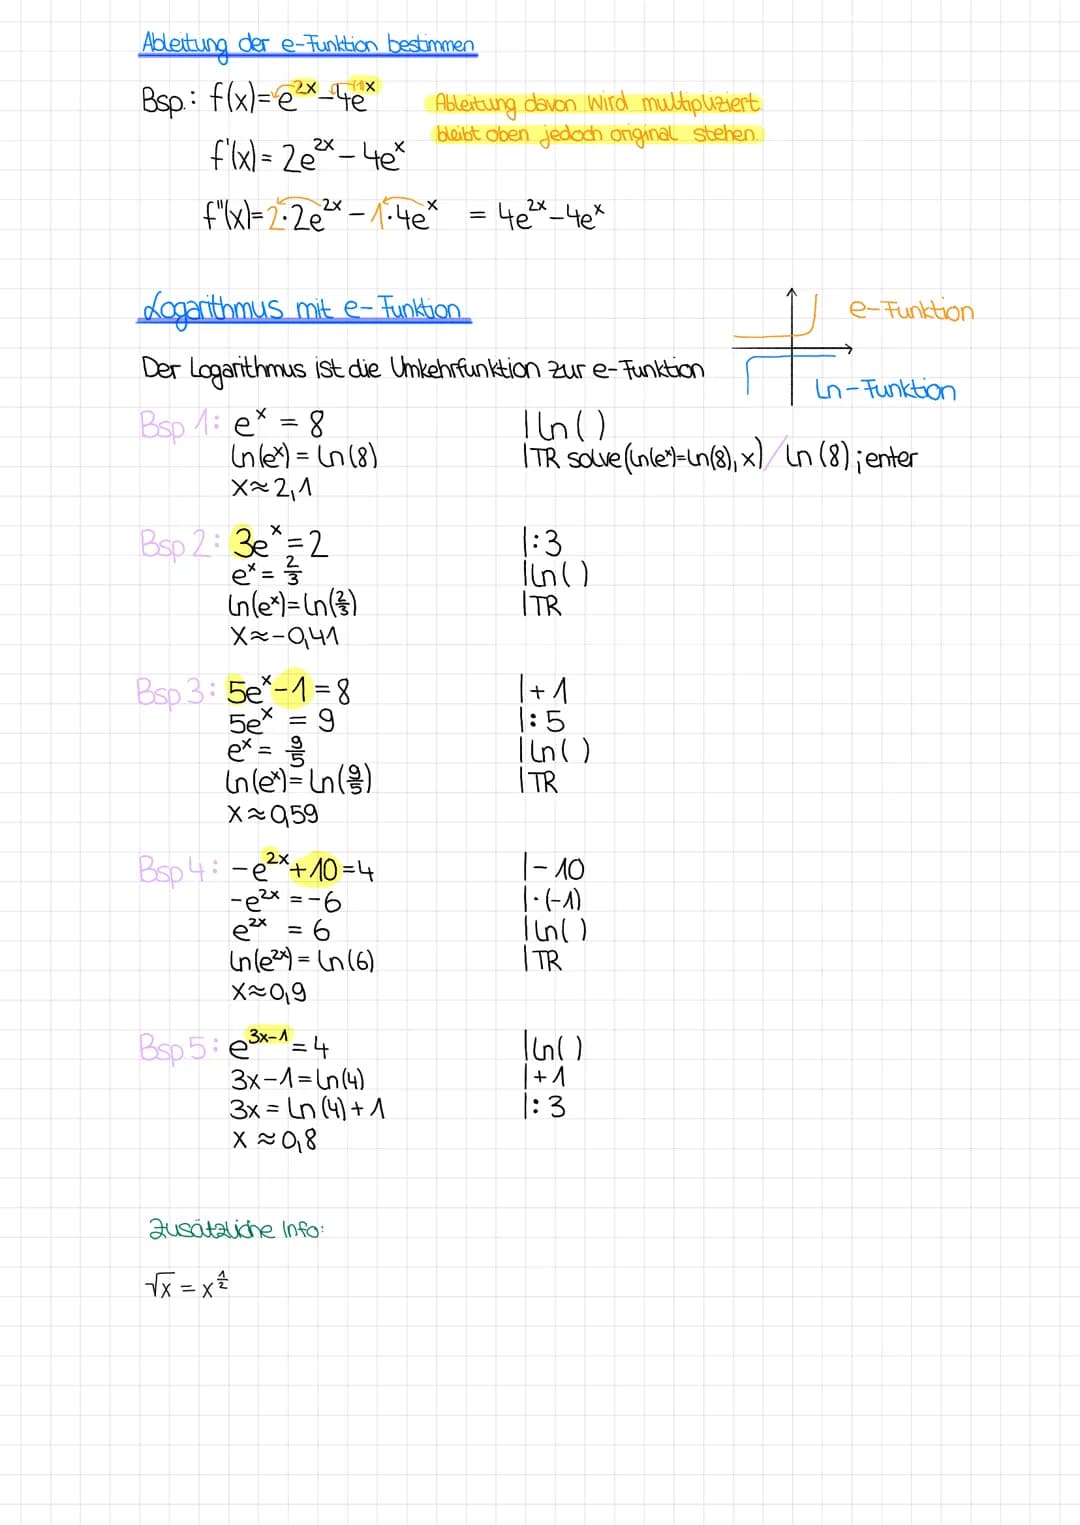 Ableitung der e-Funktion bestimmen
Bsp.: f(x)=e^{2x}-4e^{1x}
Ableitung davon wird multipliziert
bleibt oben jedoch original stehen.
f'(x)= 2e^{2x} - 4e^x
f''(x)=2·2e^{2x} - 1·4e^x = 4e^{2x}-4e^x
Logarithmus mit e-Funktion
e-Funktion
Der Logarithmus ist die Umkehrfunktion zur e-Funktion
Ln-Funktion
Bsp 1: e^x = 8 | ln()
ln(e^x) = ln(8) | TR solve(ln(e^x)=ln(8),x) / ln(8);enter
x≈2,1
Bsp 2: 3e^x=2 |:3
e^x = 2/3 |ln()
ln(e^x)=ln(2/3) |TR
x≈-0,41
Bsp 3: 5e^x-1=8 |+1
5e^x = 9 |:5
e^x = 9/5 |ln()
ln(e^x)=ln(9/5) |TR
x≈0,59
Bsp 4: -e^{2x}+10=4 |-10
-e^{2x} =-6 |·(-1)
e^{2x} = 6 |ln()
ln(e^{2x})=ln(6) |TR
x≈0,9
Bsp 5: e^{3x-1}=4 |ln()
3x-1=ln(4) |+1
3x=ln(4)+1 |:3
x ≈0,8
Zusätzliche Info:
√x = x^{1/2}